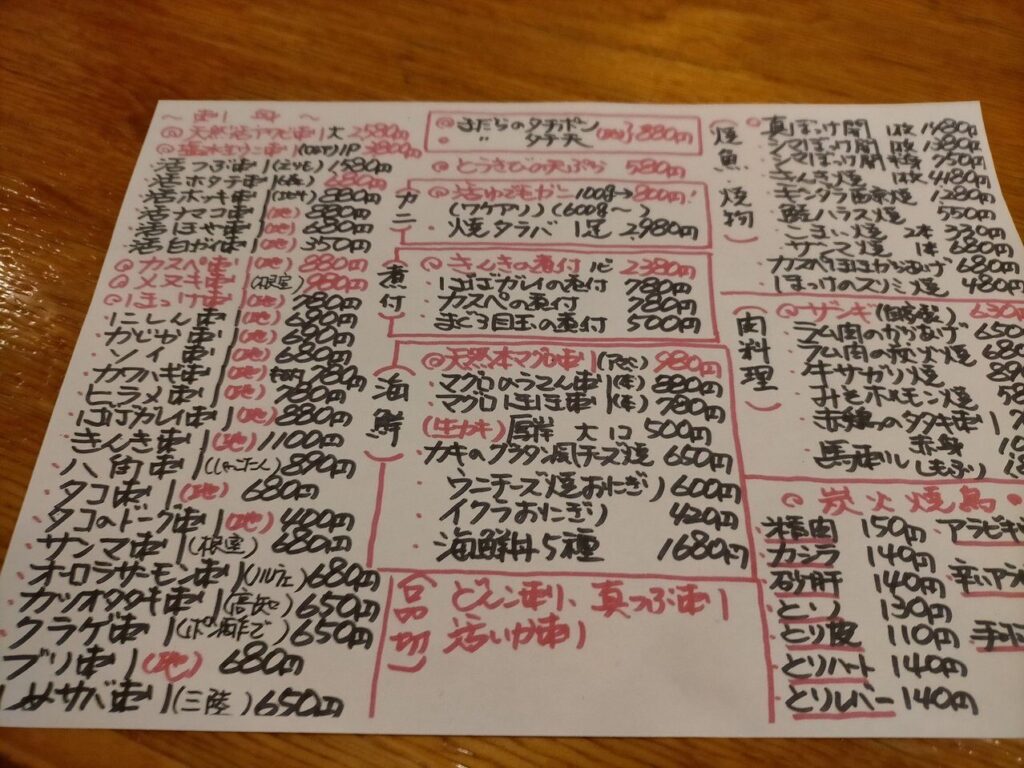 ～ 刺身 ～
◎天然活アワビ刺 大 2580円
活つぶ刺(えりも) 1580円
活ホタテ刺 680円
活ホッキ刺 880円
活ナマコ刺(地) 880円
活ほや刺(地) 680円
活白ガイ刺(地) 350円
◎カスペ刺(地) 880円
◎メヌキ刺(根室) 980円
◎ほっけ刺(地) 780円
・にしん刺(地) 680円
・かじか刺(地) 680円
・ソイ刺(地) 680円
・カワハギ刺 780円
・ヒラメ刺(地) 780円
・ババガレイ刺(地) 880円
・きんき刺(地) 1100円
・八角刺(しゃこたん) 890円
・タコ刺(地) 680円
・タコのトーグ刺(地) 400円
・サンマ刺(根室) 680円
・オーロラサーモン刺(ノルウェー) 680円
・カツオタタキ刺(高知) 650円
・クラゲ刺(ポン酢で) 650円
ブリ刺(地) 680円
〆サバ刺(三陸) 650円
◎まだらのタチポン 880円
〃 タチ天
◎とうきびの天ぷら 580円
(カニ)
◎活ゆで毛ガニ 100g→800円!
(ワケアリ)(600g～)
・焼タラバ 1足 2,980円
煮付
◎きんきの煮付 2380円
・ババガレイの煮付 780円
・カスペの煮付 780円
・まぐろ目玉の煮付 500円
(海鮮)
◎天然本マグロ刺 980円
・マグロのうてん刺 880円
・マグロほほ刺 780円
(生カキ) 厚岸 大 1コ 500円
・カキのグラタン風チーズ焼 650円
・ウニチーズ焼おにぎり 600円
・イクラおにぎり 420円
・海鮮丼5種 1680円
(品切) どんこ刺、真つぶ刺
活いか刺
(焼魚 焼物)
・真ほっけ開 1枚 1480円
・シマほっけ開 1枚 1380円
・シマほっけ開 半身 750円
・きんき焼 1枚 4180円
・ギンダラ西京焼 1280円
・鮭ハラス焼 550円
・こまい焼 2本 330円
・サンマ焼 1本 680円
・カスペほほからあげ 680円
・ほっけのスリミ焼 480円
(肉料理)
◎ザンギ(自家製) 630円
・ラム肉のからあげ 650
・ラム肉の炭火焼 680
・牛サガリ焼
・みそホルモン焼
・赤鶏のタタキ刺
・馬刺し 赤身
(しもふり)
◎炭火焼鳥◎
・精肉 150円
・カシラ 140円
・砂肝 140円
・とりソ 130円
・とり皮 110円
・とりハート 140円
・とりレバー 140円